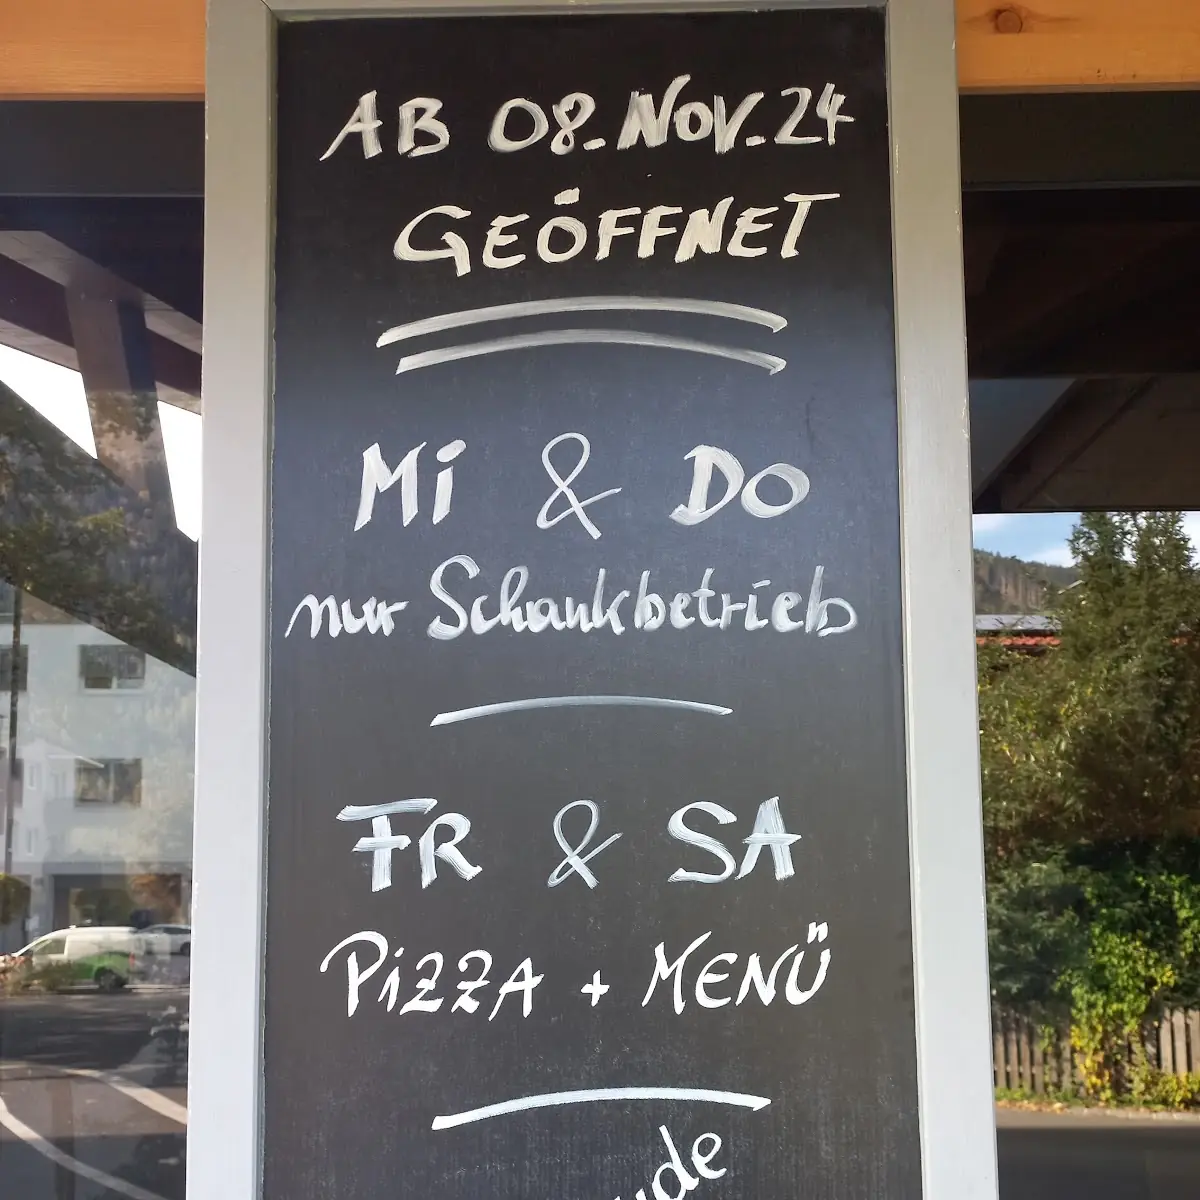 AB 08. NOV. 24
GEÖFFNET
Mi & DO
nur Schankbetrieb
FR & SA
PiZZA + MENÜ